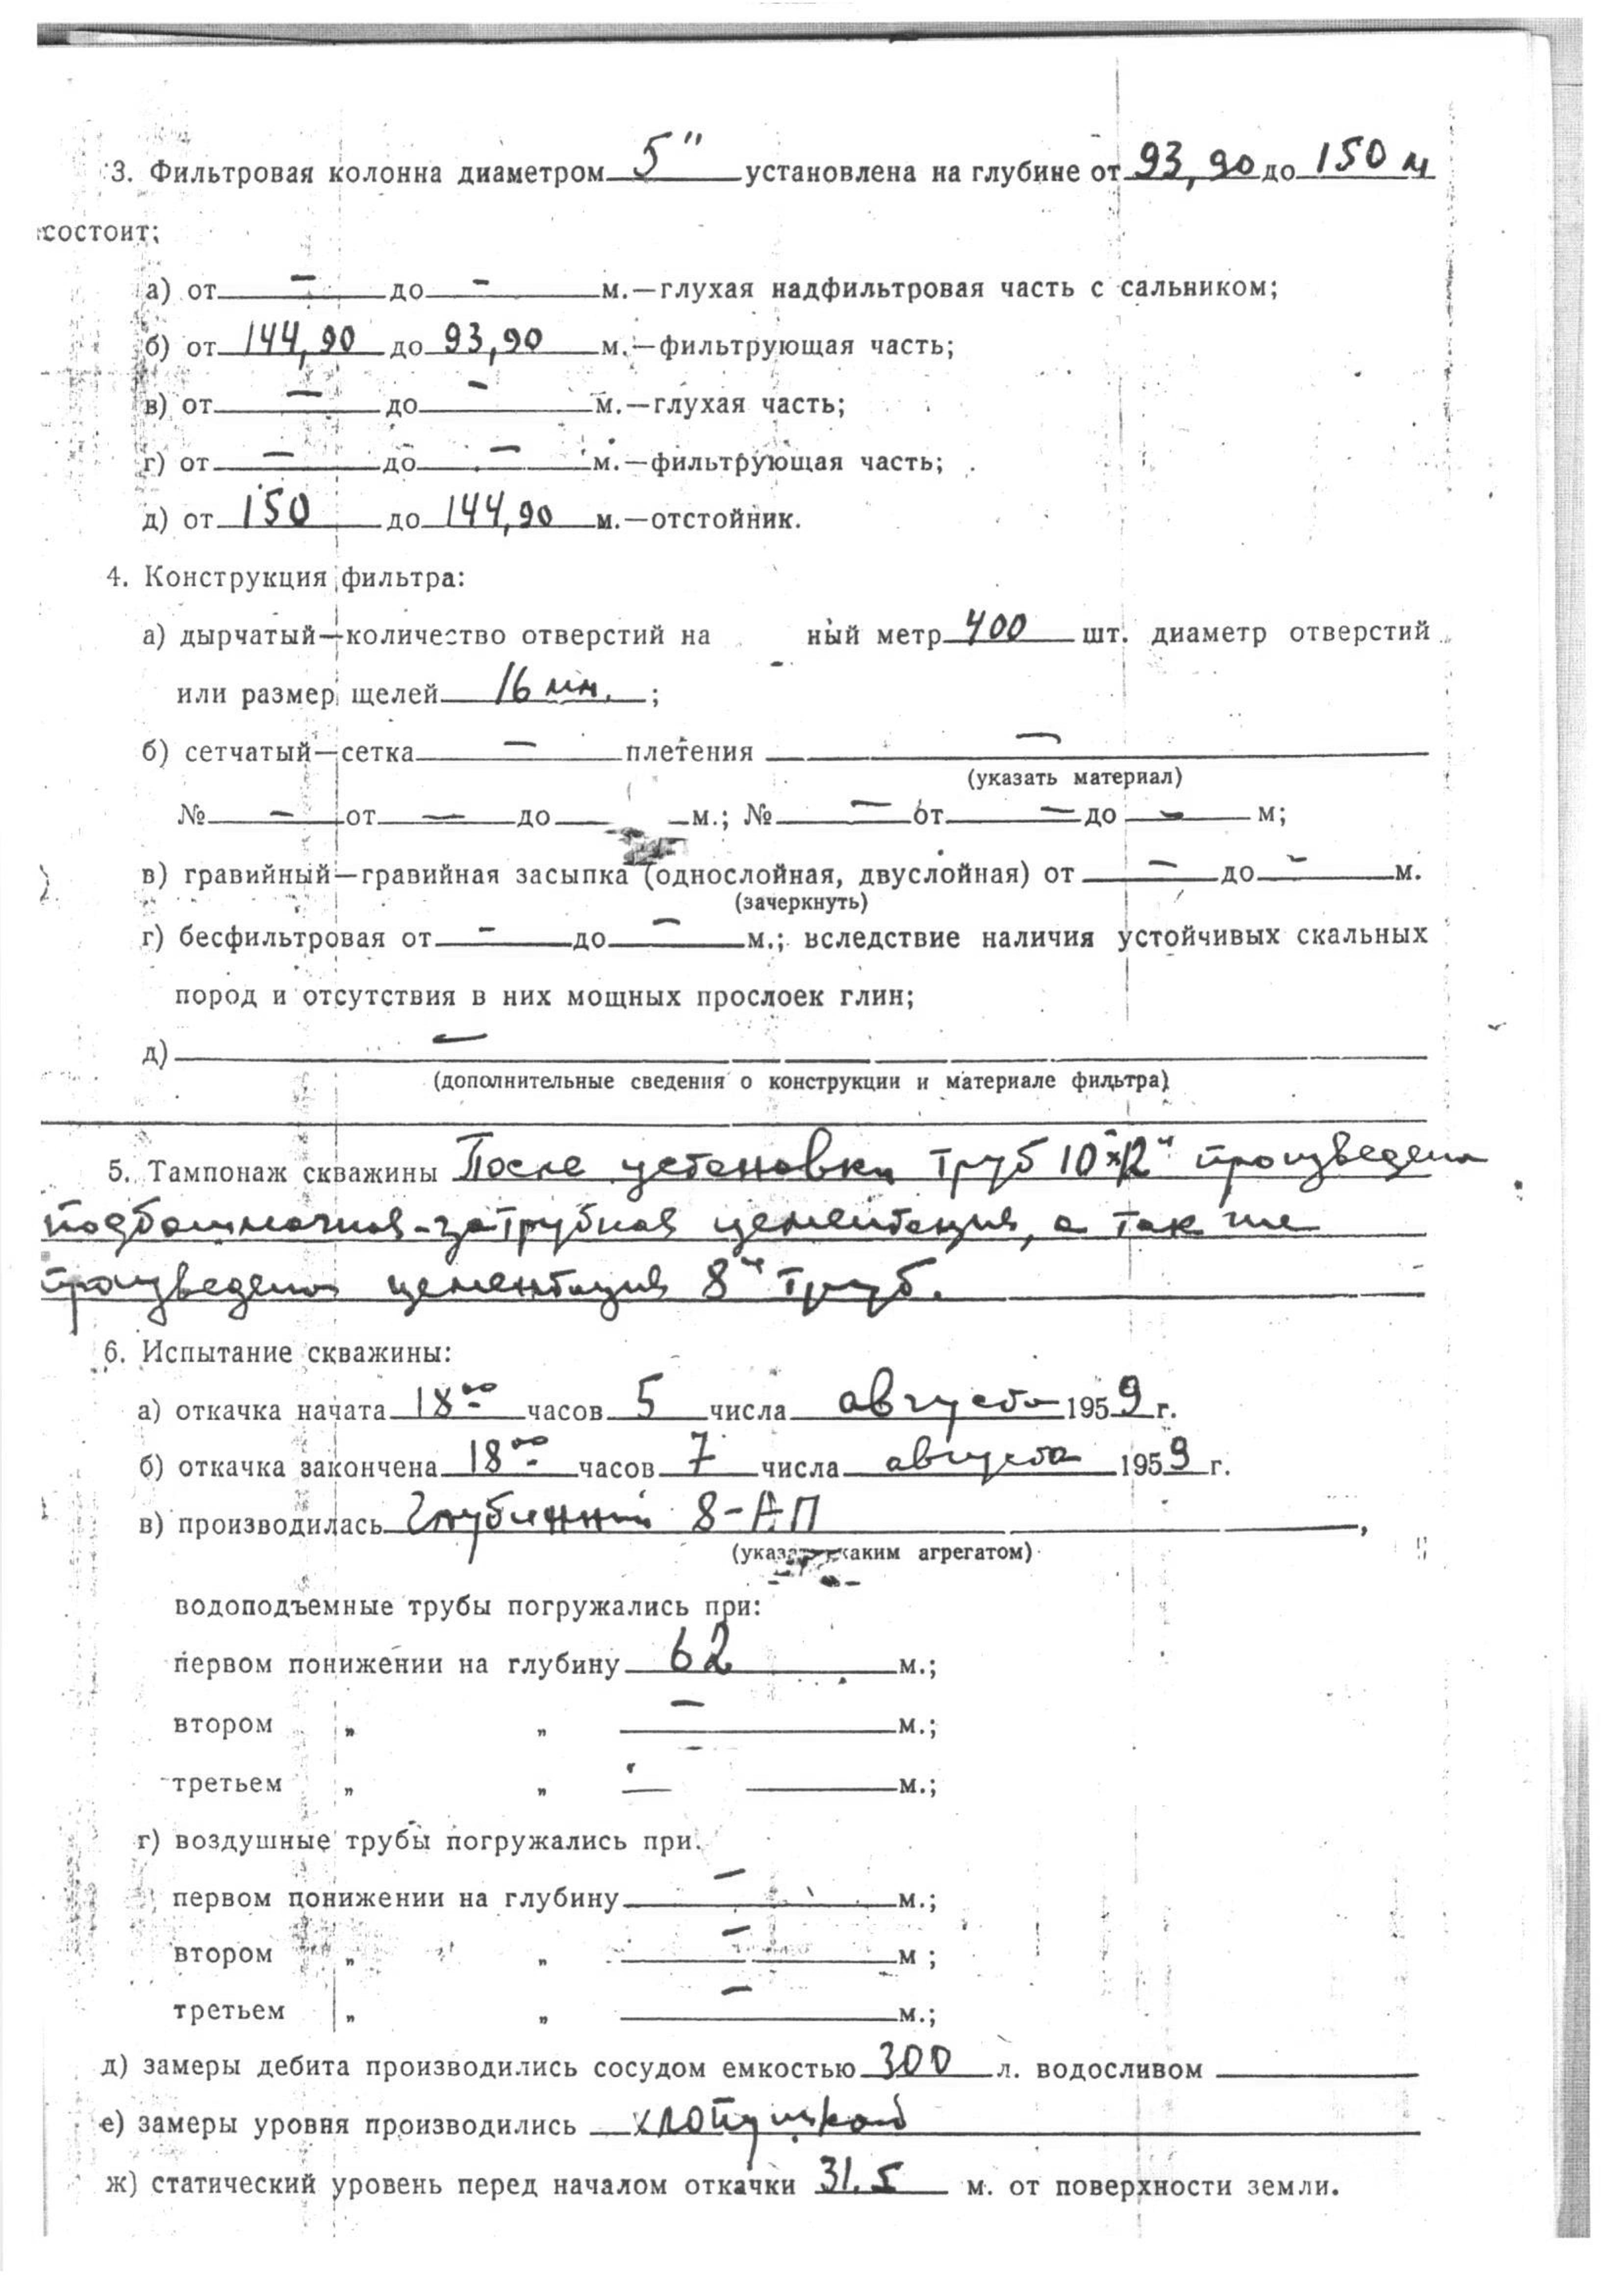 3. Фильтровая колонна диаметром 5" установлена на глубине от 93,90 до 150 м
состоит;
а) от — до — м.—глухая надфильтровая часть с сальником;
б) от 144,90 до 93,90 м.—фильтрующая часть;
в) от — до — м.—глухая часть;
г) от — до — м.—фильтрующая часть;
д) от 150 до 144,90 м.—отстойник.
4. Конструкция фильтра:
а) дырчатый—количество отверстий на ный метр 400 шт. диаметр отверстий
или размер щелей 16 мм. ;
б) сетчатый—сетка — плетения —
(указать материал)
№ — от — до м.; № — от — до — м;
в) гравийный—гравийная засыпка (однослойная, двуслойная) от — до — м.
(зачеркнуть)
г) бесфильтровая от — до — м.; вследствие наличия устойчивых скальных
пород и отсутствия в них мощных прослоек глин;
д) —
(дополнительные сведения о конструкции и материале фильтра)
5. Тампонаж скважины После установки труб 10"х12" произведена
подбашмачная-затрубная цементация, а так же
произведена цементация 8" труб.
6. Испытание скважины:
а) откачка начата 18⁰⁰ часов 5 числа августа 1959 г.
б) откачка закончена 18⁰⁰ часов 7 числа августа 1959 г.
в) производилась Глубинный 8-АП ,
(указать каким агрегатом)
водоподъемные трубы погружались при:
первом понижении на глубину 62 м.;
втором „ „ — м.;
третьем „ „ — м.;
г) воздушные трубы погружались при.
первом понижении на глубину — м.;
втором „ „ — м ;
третьем „ „ — м.;
д) замеры дебита производились сосудом емкостью 300 л. водосливом
е) замеры уровня производились хлопушкой
ж) статический уровень перед началом откачки 31.5 м. от поверхности земли.